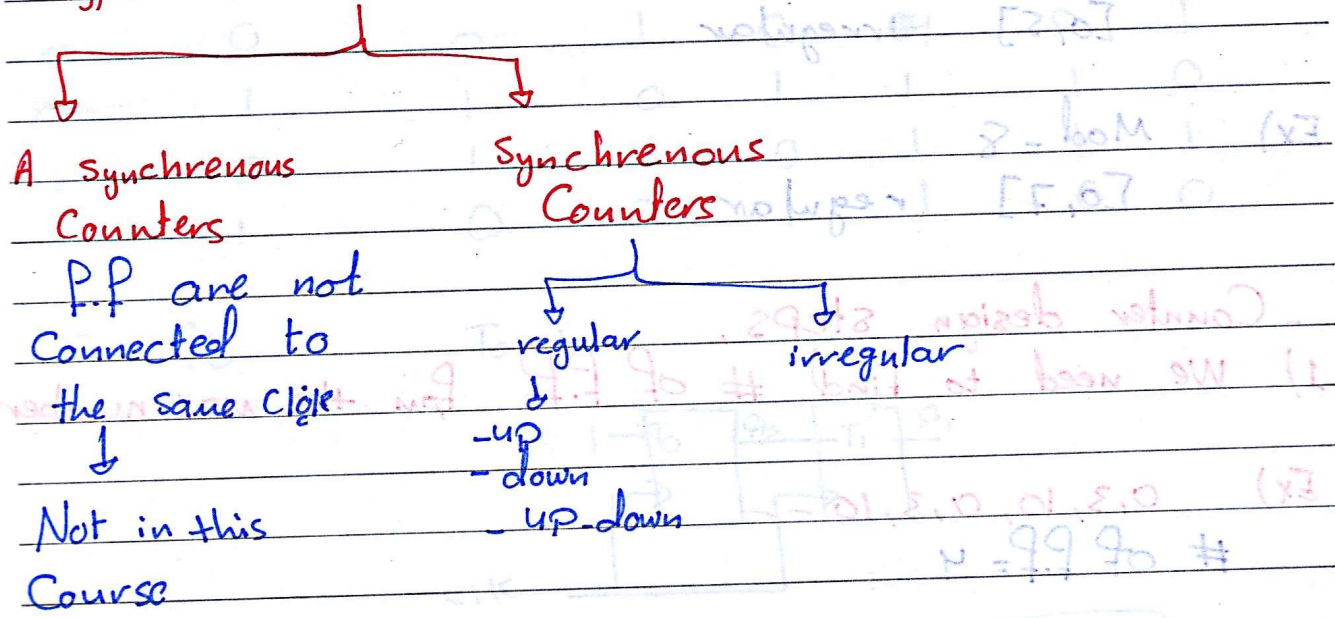 A synchrenous
Counters
f.f are not
Connected to
the same Clock
Not in this
Course
Synchrenous
Counters
regular
irregular
-up
- down
- up-down